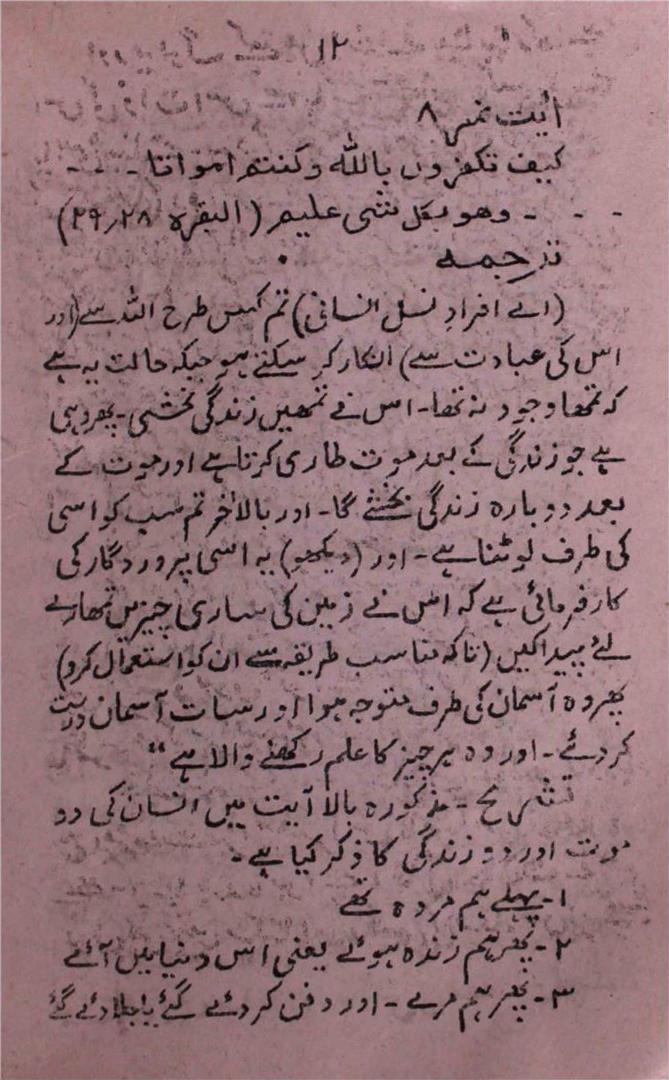 ۲۱
آیت نمبر ۸
کیف تکفرون باللہ وکنتم امواتا ۔ ۔ ۔
۔ ۔ ۔ وھو بکل شی علیم (البقرہ ۲۸؍۲۹)
ترجمہ
(اے افرادِ نسل انسانی) تم کس طرح اللہ سے (اور
اس کی عبادت سے) انکار کر سکتے ہو جبکہ حالت یہ ہے
کہ تمھا وجود نہ تھا۔ اس نے تمھیں زندگی بخشی۔ پھر وہی
ہے جو زندگی کے بعد موت طاری کرتا ہے اور موت کے
بعد دوبارہ زندگی بخشے گا۔ اور بالآخر تم سب کو اسی
کی طرف لوٹنا ہے۔ اور (دیکھو) یہ اسی پروردگار کی
کارفرمائی ہے کہ اس نے زمین کی ساری چیزیں تمھارے
لئے پیدا کیں (تاکہ مناسب طریقہ سے ان کو استعمال کرو)
پھر وہ آسمان کی طرف متوجہ ہوا اور سات آسمان درست
کر دئے۔ اور وہ ہر چیز کا علم رکھنے والا ہے“
تشریح ۔ مذکورہ بالا آیت میں انسان کی دو
موت اور دو زندگی کا ذکر کیا ہے۔
۱۔ پہلے ہم مردہ تھے
۲۔ پھر ہم زندہ ہوئے یعنی اس دنیا میں آئے
۳۔ پھر ہم مرے ۔ اور دفن کر دئے گئے یا جلا دئے گئے